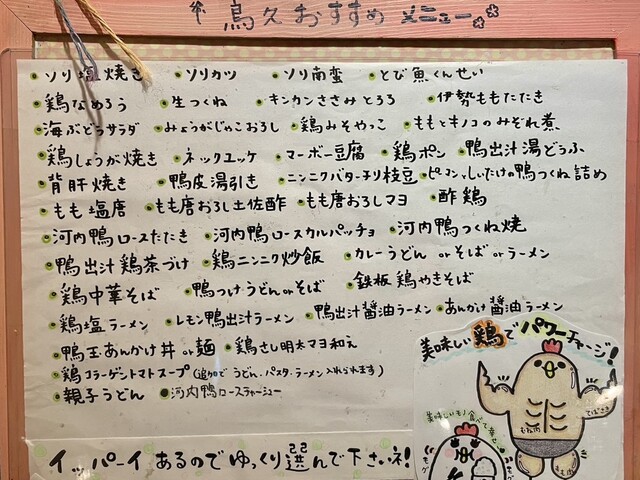 鳥久おすすめメニュー
ソリ塩焼き ソリカツ ソリ南蛮 とび魚くんせい
鶏なめろう 生つくね キンカンささみとろろ 伊勢ももたたき
海ぶどうサラダ みょうがじゃこおろし 鶏みそやっこ ももとキノコのみぞれ煮
鶏しょうが焼き ネックユッケ マーボー豆腐 鶏ポン 鴨出汁湯どうふ
背肝焼き 鴨皮湯引き ニンニクバター千り枝豆 ピーマンとしいたけの鴨つくね詰め
もも塩唐 もも唐おろし土佐酢 もも唐おろしマヨ 酢鶏
河内鴨ロースたたき 河内鴨ロースカルパッチョ 河内鴨つくね焼
鴨出汁鶏茶づけ 鶏ニンニク炒飯 カレーうどん orそば orラーメン
鶏中華そば 鴨つけうどんorそば 鉄板鶏やきそば
鶏塩ラーメン レモン鴨出汁ラーメン 鴨出汁醤油ラーメン あんかけ醤油ラーメン
鴨玉あんかけ丼 or 麺 鶏さし明太マヨ和え
鶏コラーゲントマトスープ (追加で うどん・パスタ・ラーメン入れられます)
親子うどん 河内鴨ロースチャーシュー
イッパーイあるのでゆっくり選んで下さいネ!
美味しい鶏でパワーチャージ!
美味しいモノ食べて幸せ
むね肉
てばさき
もも肉